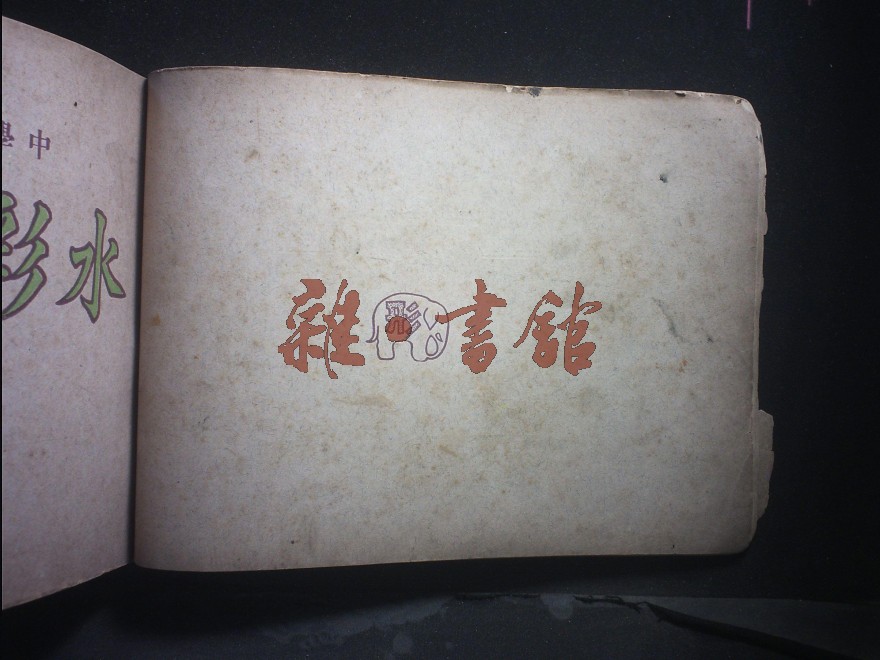 中學
水彩
雜書館